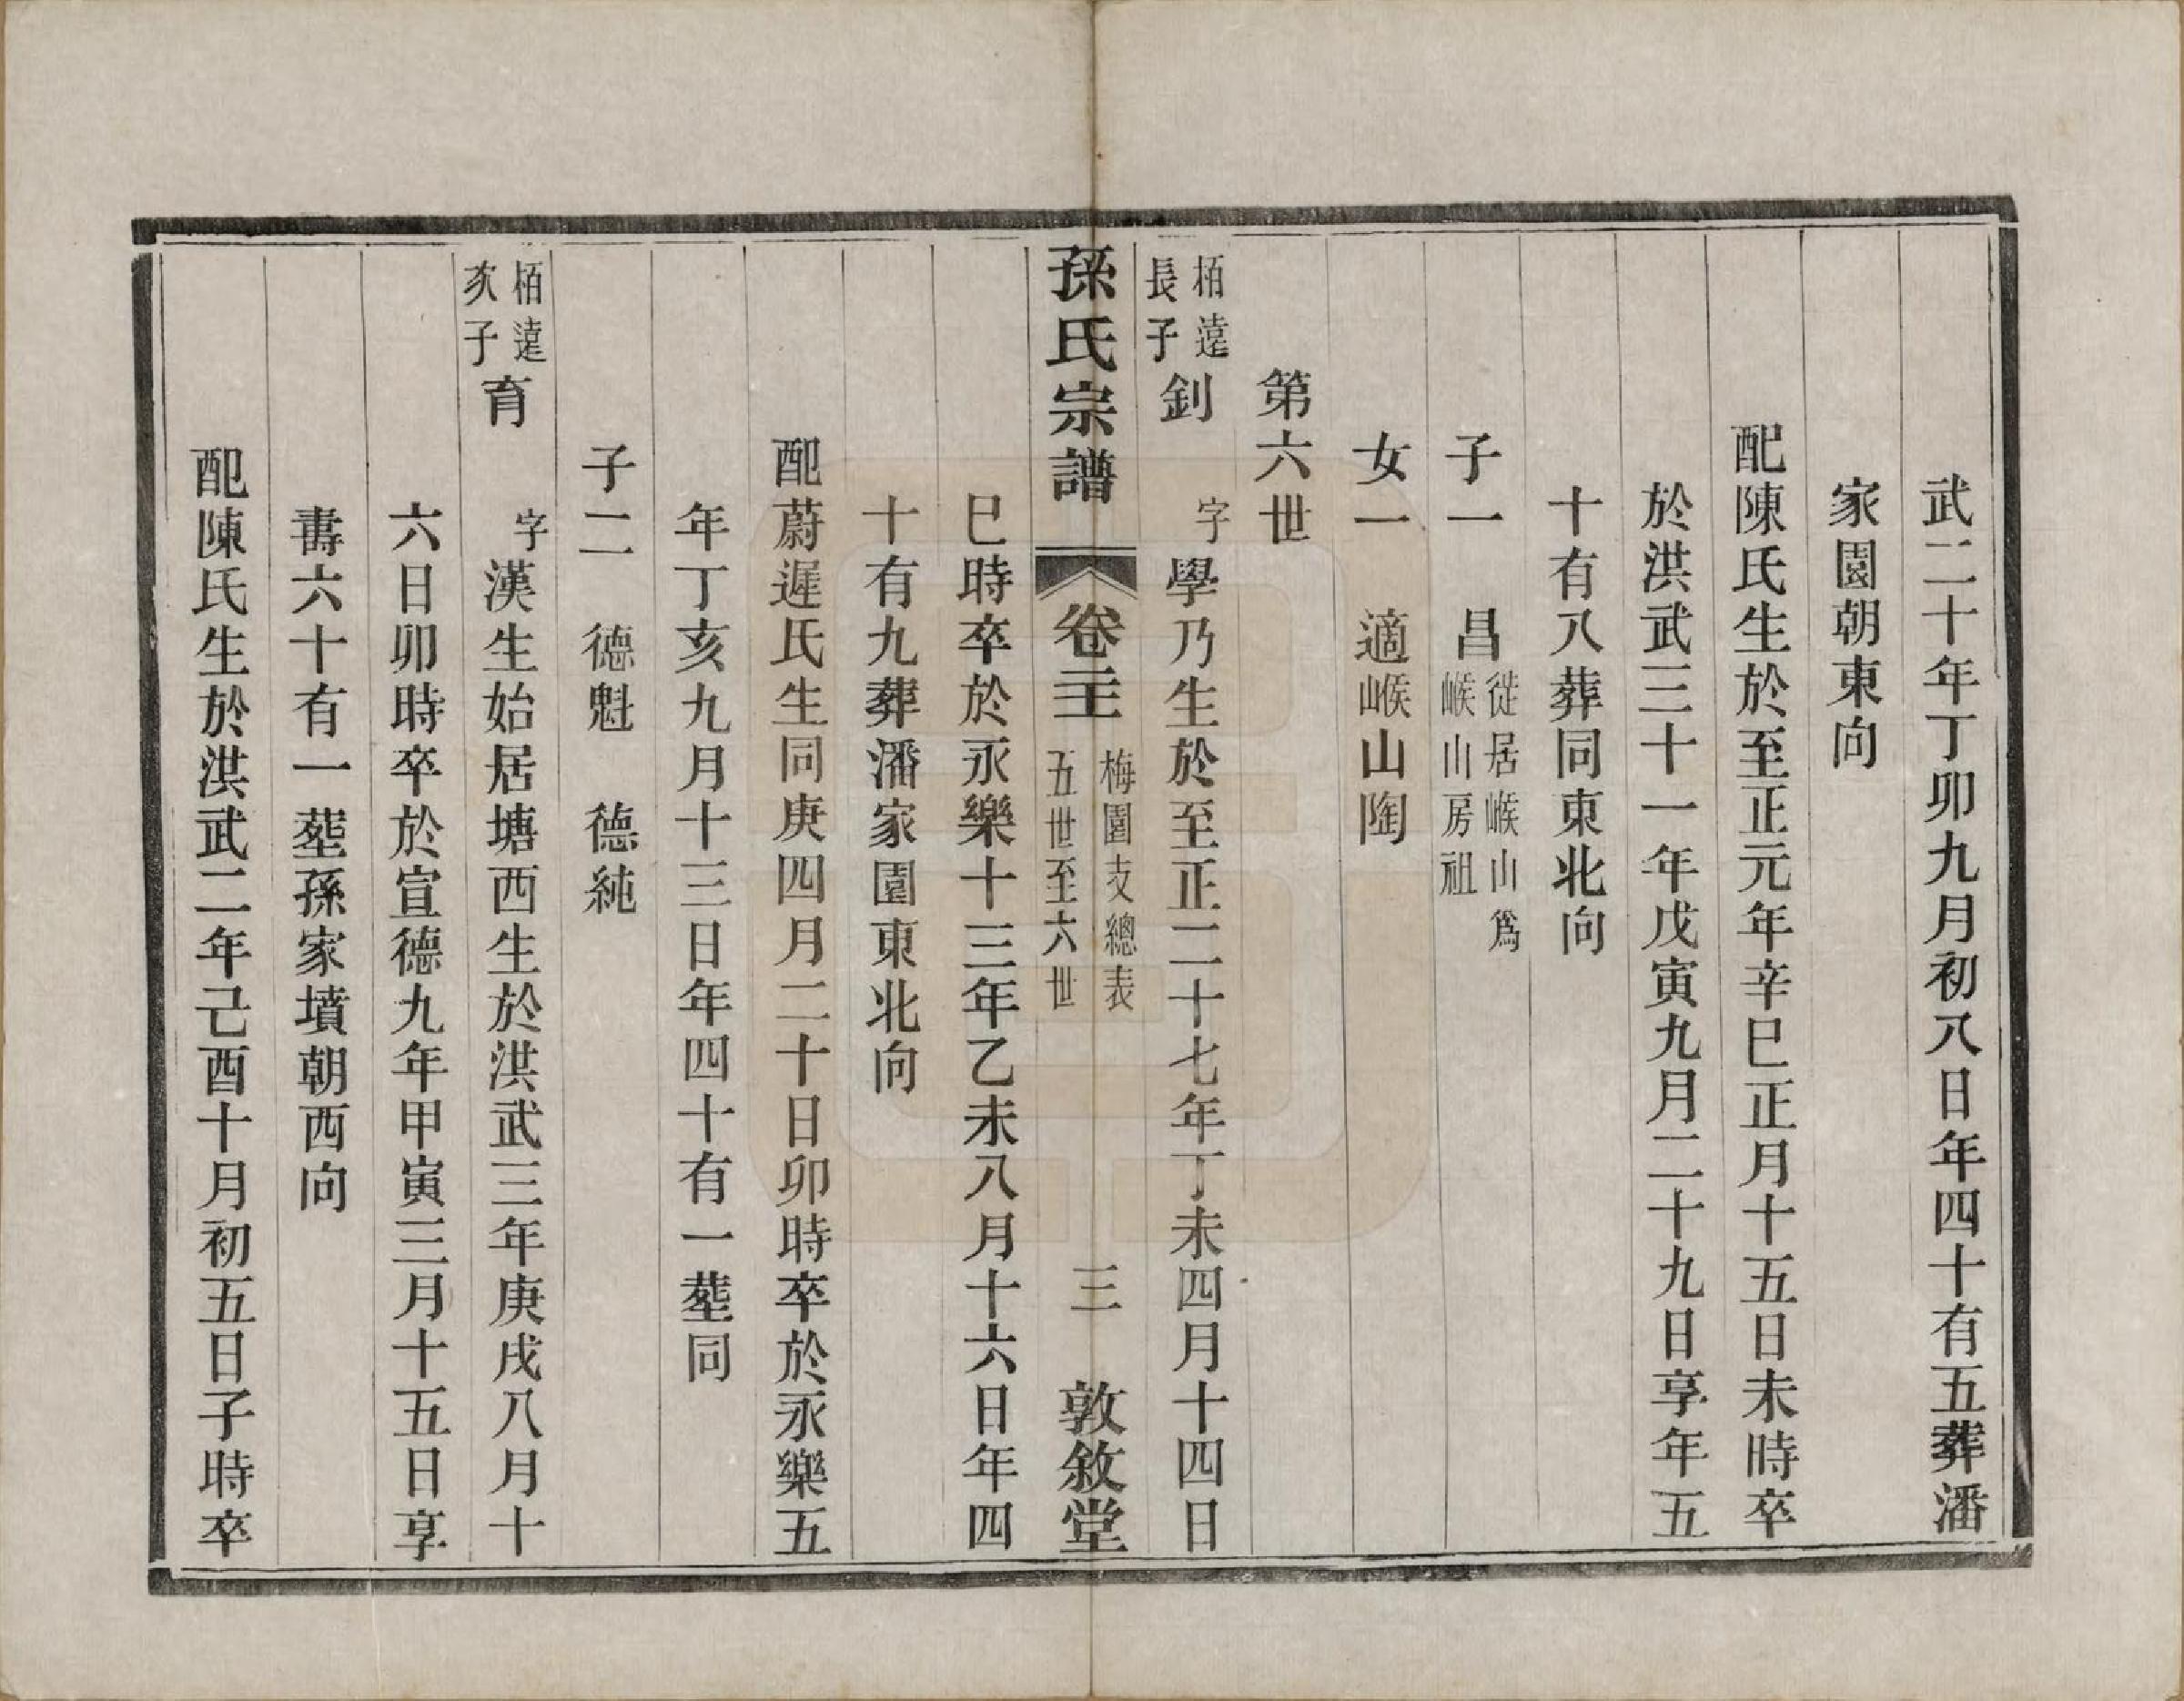 武二十年丁卯九月初八日年四十有五葬潘
家園朝東向
配陳氏生於至正元年辛巳正月十五日未時卒
於洪武三十一年戊寅九月二十九日享年五
十有八葬同東北向
子一 昌 徙居㠗山為㠗山房祖
女一 適㠗山陶
第六世
栢遠長子 釗 字學乃生於至正二十七年丁未四月十四日
孫氏宗譜 卷二十一 梅園支總表 五世至六世 三 敦敘堂
巳時卒於永樂十三年乙未八月十六日年四
十有九葬潘家園東北向
配蔚遲氏生同庚四月二十日卯時卒於永樂五
年丁亥九月十三日年四十有一塟同
子二 德魁 德純
栢遠次子 育 字漢生始居塘西生於洪武三年庚戌八月十
六日卯時卒於宣德九年甲寅三月十五日享
壽六十有一塟孫家墳朝西向
配陳氏生於洪武二年己酉十月初五日子時卒